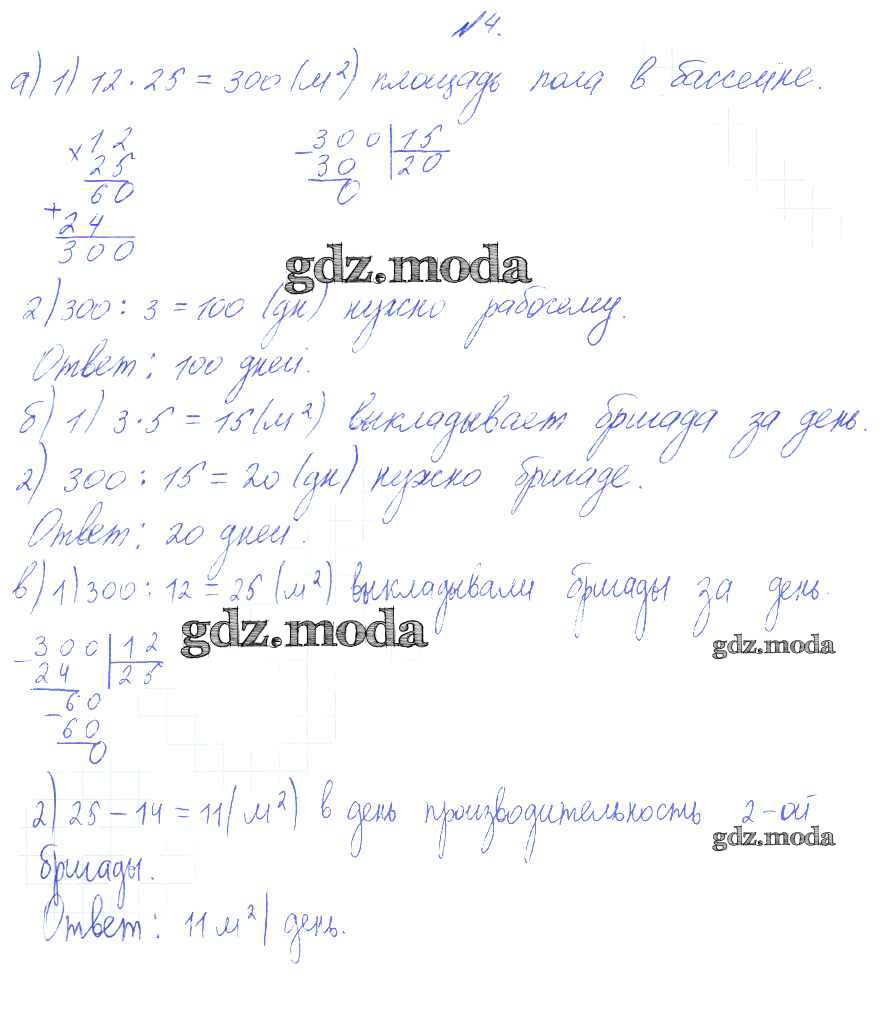 №4.
а) 1) 12 · 25 = 300 (м²) площадь пола в бассейне.
× 12
25
60
+ 24
300
– 300 | 15
30 | 20
0
gdz.moda
2) 300 : 3 = 100 (дн) нужно рабочему.
Ответ: 100 дней.
б) 1) 3 · 5 = 15 (м²) выкладывает бригада за день.
2) 300 : 15 = 20 (дн) нужно бригаде.
Ответ: 20 дней.
в) 1) 300 : 12 = 25 (м²) выкладывали бригады за день.
gdz.moda
gdz.moda
– 300 | 12
24 | 25
– 60
60
0
2) 25 – 14 = 11 (м²) в день производительность 2-ой
gdz.moda
бригады.
Ответ: 11 м² | день.